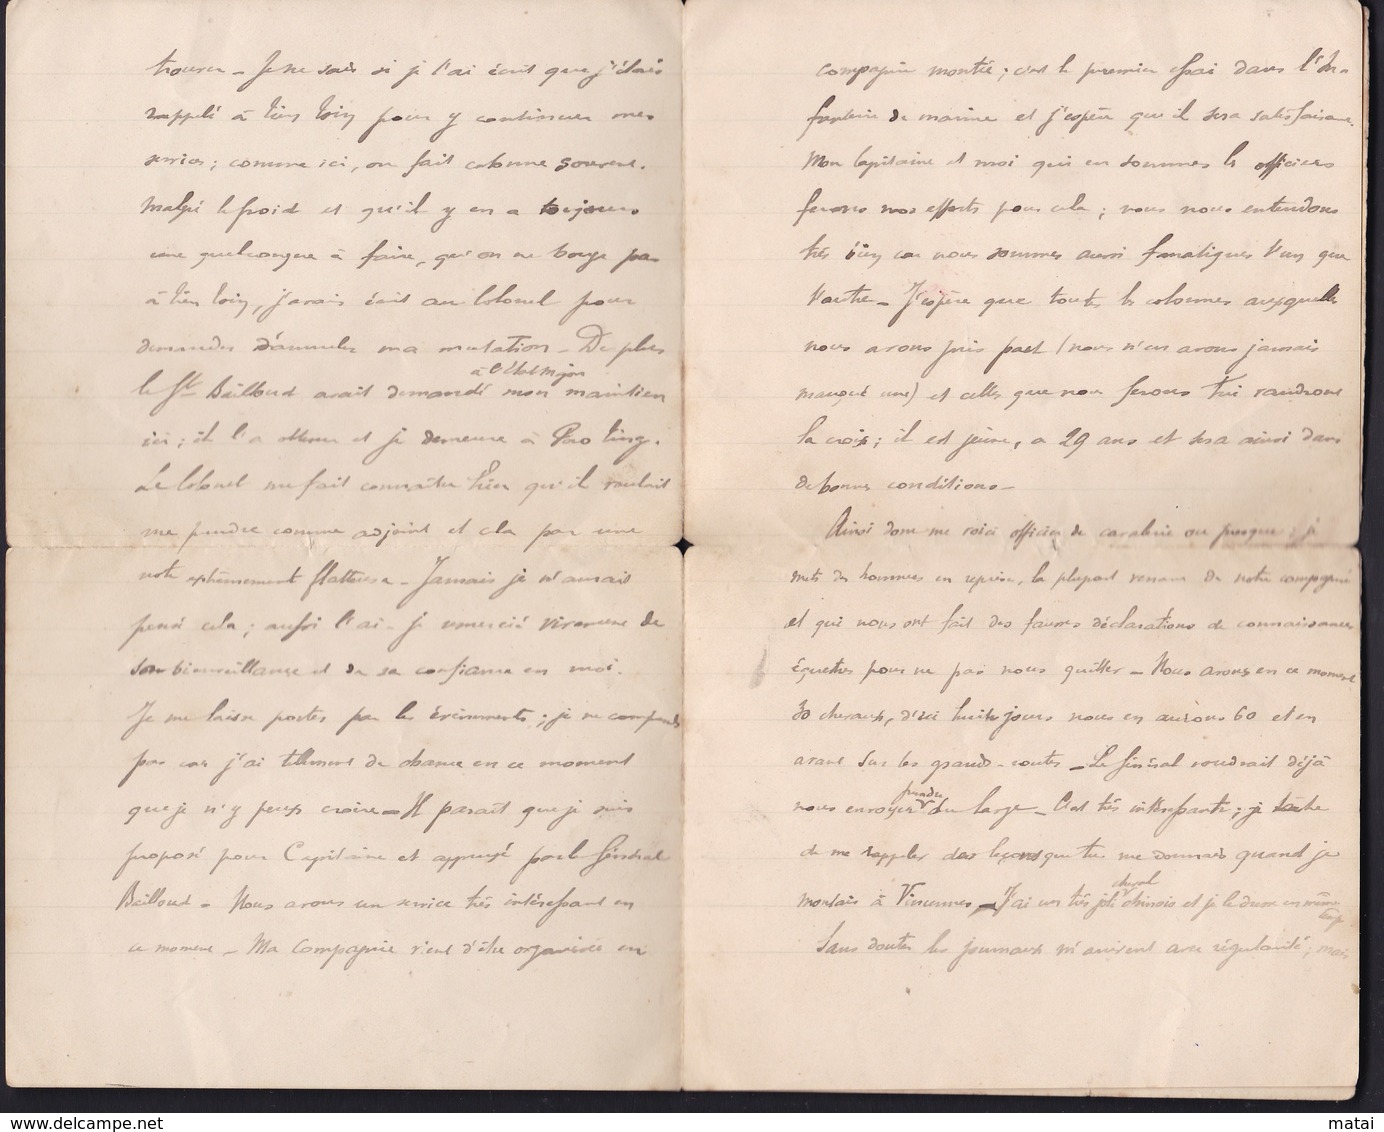 trouver — Je ne sais si je t'ai écrit que j'étais
rappelé à Tien Tsin pour y continuer mes
services ; comme ici, on fait colonne souvent.
Malgré le froid et qu'il y en a toujours
une quelconque à faire, qu'on ne bouge pas
à Tien Tsin, j'avais écrit au Colonel pour
demander d'annuler ma mutation — De plus
à l'état major
le Gl Bailloud avait demandé mon maintien
ici ; il l'a obtenu et je demeure à Pao Ting.
Le Colonel me fait connaître hier qu'il voulait
me prendre comme adjoint et cela par une
note extrêmement flatteuse — Jamais je n'aurais
pensé cela ; aussi l'ai-je remercié vivement de
son bienveillance et de sa confiance en moi.
Je me laisse porter par les événements ; je ne comprends
pas car j'ai tellement de chance en ce moment
que je n'y peux croire — Il parait que je suis
proposé pour Capitaine et appuyé par le Général
Bailloud — Nous avons un service très intéressant en
ce moment — Ma Compagnie vient d'être organisée en
compagnie montée ; c'est le premier essai dans l'In-
fanterie de marine et j'espère que il sera satisfaisant.
Mon Capitaine et moi qui en sommes les officiers
ferons nos efforts pour cela ; nous nous entendons
très bien car nous sommes aussi fanatiques l'un que
l'autre — J'espère que toutes les colonnes auxquelles
nous avons pris part (nous n'en avons jamais
manqué une) et celles que nous ferons lui vaudront
la croix ; il est jeune, a 29 ans et sera ainsi dans
de bonnes conditions —
Ainsi donc me voici officier de cavalerie ou presque ; je
mets des hommes en reprise, la plupart venant de notre compagnie
et qui nous ont fait des fausses déclarations de connaissances
équestres pour ne pas nous quitter — Nous avons en ce moment
30 chevaux, d'ici huit jours nous en aurons 60 et en
avant sur les grands-routes — Le Général voudrait déjà
prendre
nous envoyer du large — C'est très intéressante ; je tâche
de me rappeler des leçons que tu me donnais quand je
cheval
montais à Vincennes — J'ai un très joli chinois et je le dresse en même
temps
Sans doutes les journaux m'arrivent avec régularité ; mais